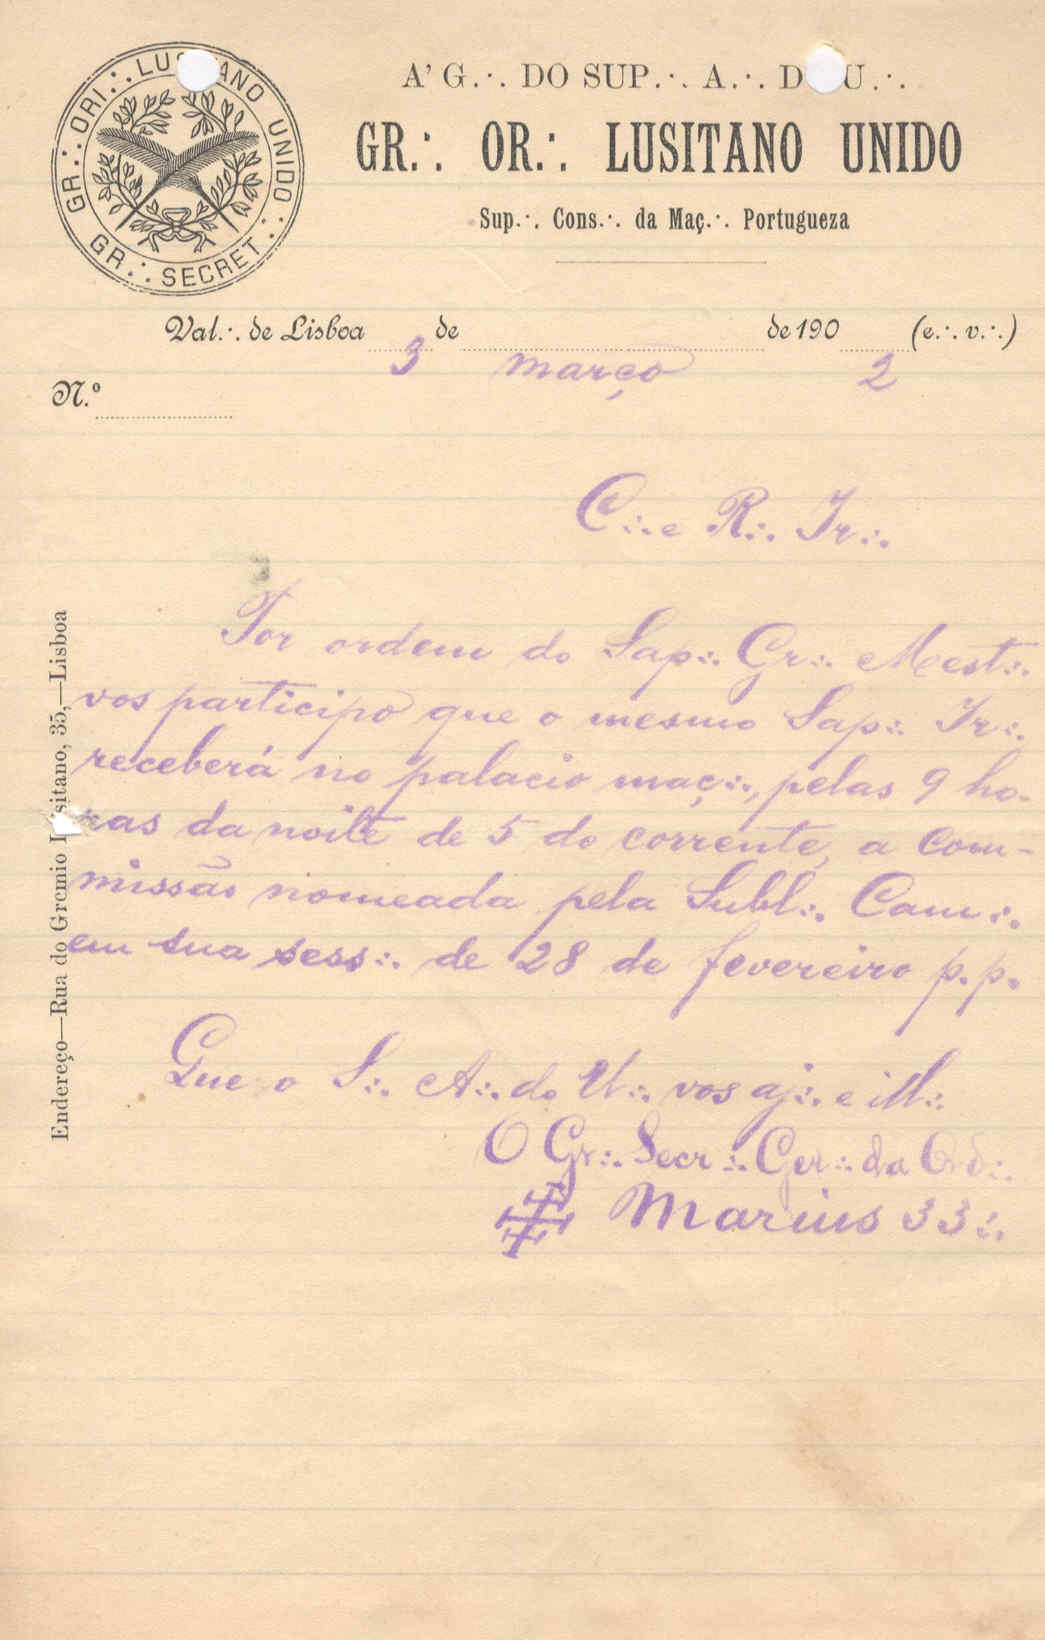 GR.∴ ORI.∴ LUSITANO UNIDO.∴
GR.∴ SECRET.∴
A' G.∴ DO SUP.∴ A.∴ D U.∴
GR.∴ OR.∴ LUSITANO UNIDO
Sup.∴ Cons.∴ da Maç.∴ Portugueza
Val.∴ de Lisboa 3 de março de 190 2 (e.∴ v.∴)
N.º
C.∴ e R.∴ Ir.∴
Por ordem do Sap.∴ Gr.∴ Mest.∴
vos participo que o mesmo Sap.∴ Ir.∴
receberá no palacio maç.∴, pelas 9 ho-
ras da noite de 5 do corrente, a com-
missão nomeada pela Subl.∴ Cam.∴
em sua sess.∴ de 28 de fevereiro p.p.
Que o S.∴ A.∴ do U.∴ vos aj.∴ e ill.∴
O Gr.∴ Secr.∴ Ger.∴ da Ord.∴
Marius 33.∴
Endereço—Rua do Gremio Lusitano, 35,—Lisboa